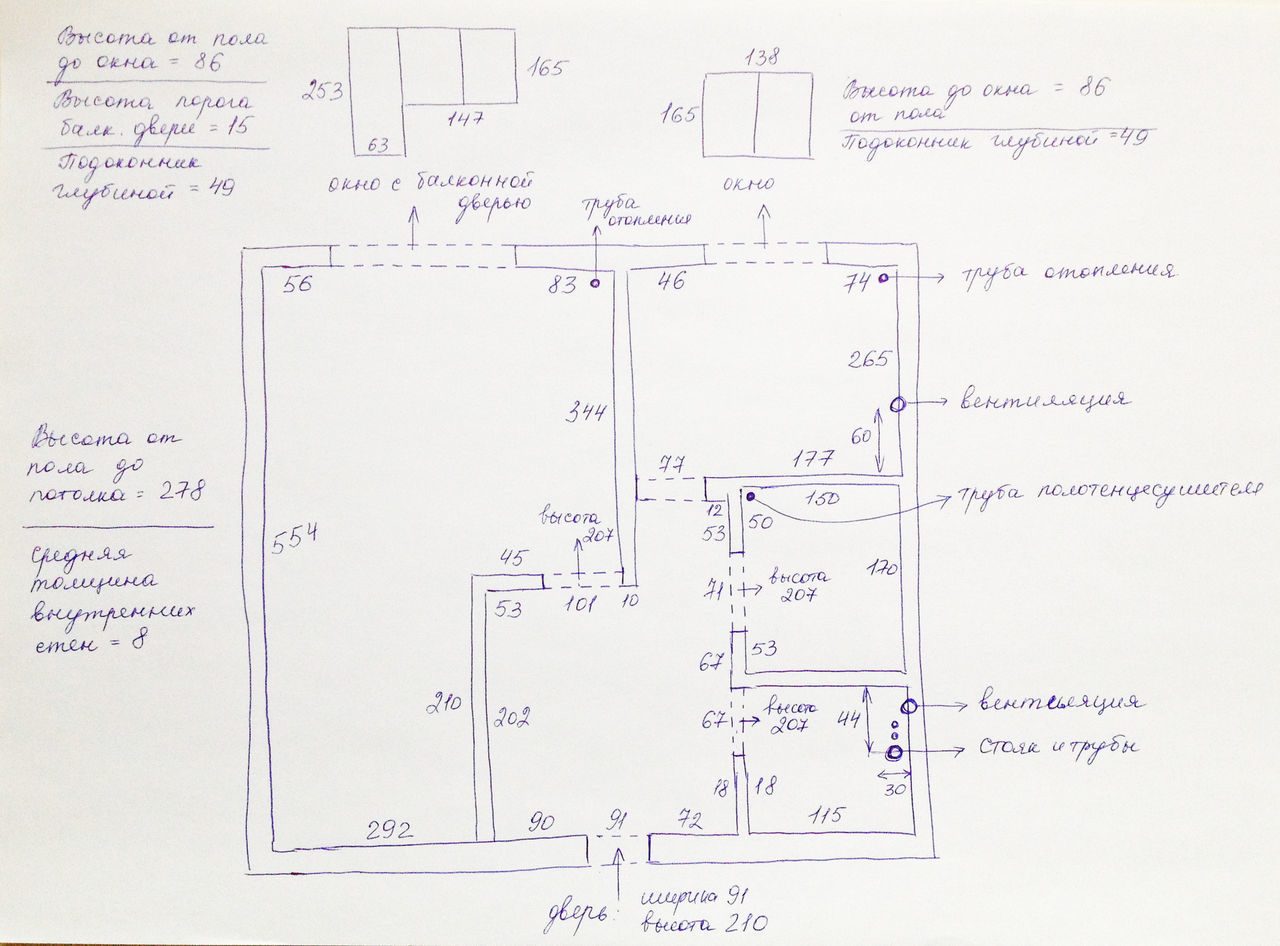 Высота от пола
до окна = 86
Высота порога
балк. двери = 15
Подоконник
глубиной = 49
253
165
147
63
окно с балконной
дверью
138
165
окно
Высота до окна = 86
от пола
Подоконник глубиной = 49
труба
отопления
56
83
46
74
труба отопления
265
344
вентиляция
60
77
177
Высота от
пола до
потолка = 278
150
труба полотенцесушителя
12
53
50
высота
207
554
средняя
толщина
внутренних
стен = 8
45
170
71
высота
207
53
101
10
53
67
210
202
67
высота
207
44
вентиляция
стояк и трубы
18
18
30
292
90
91
72
115
дверь:
ширина 91
высота 210